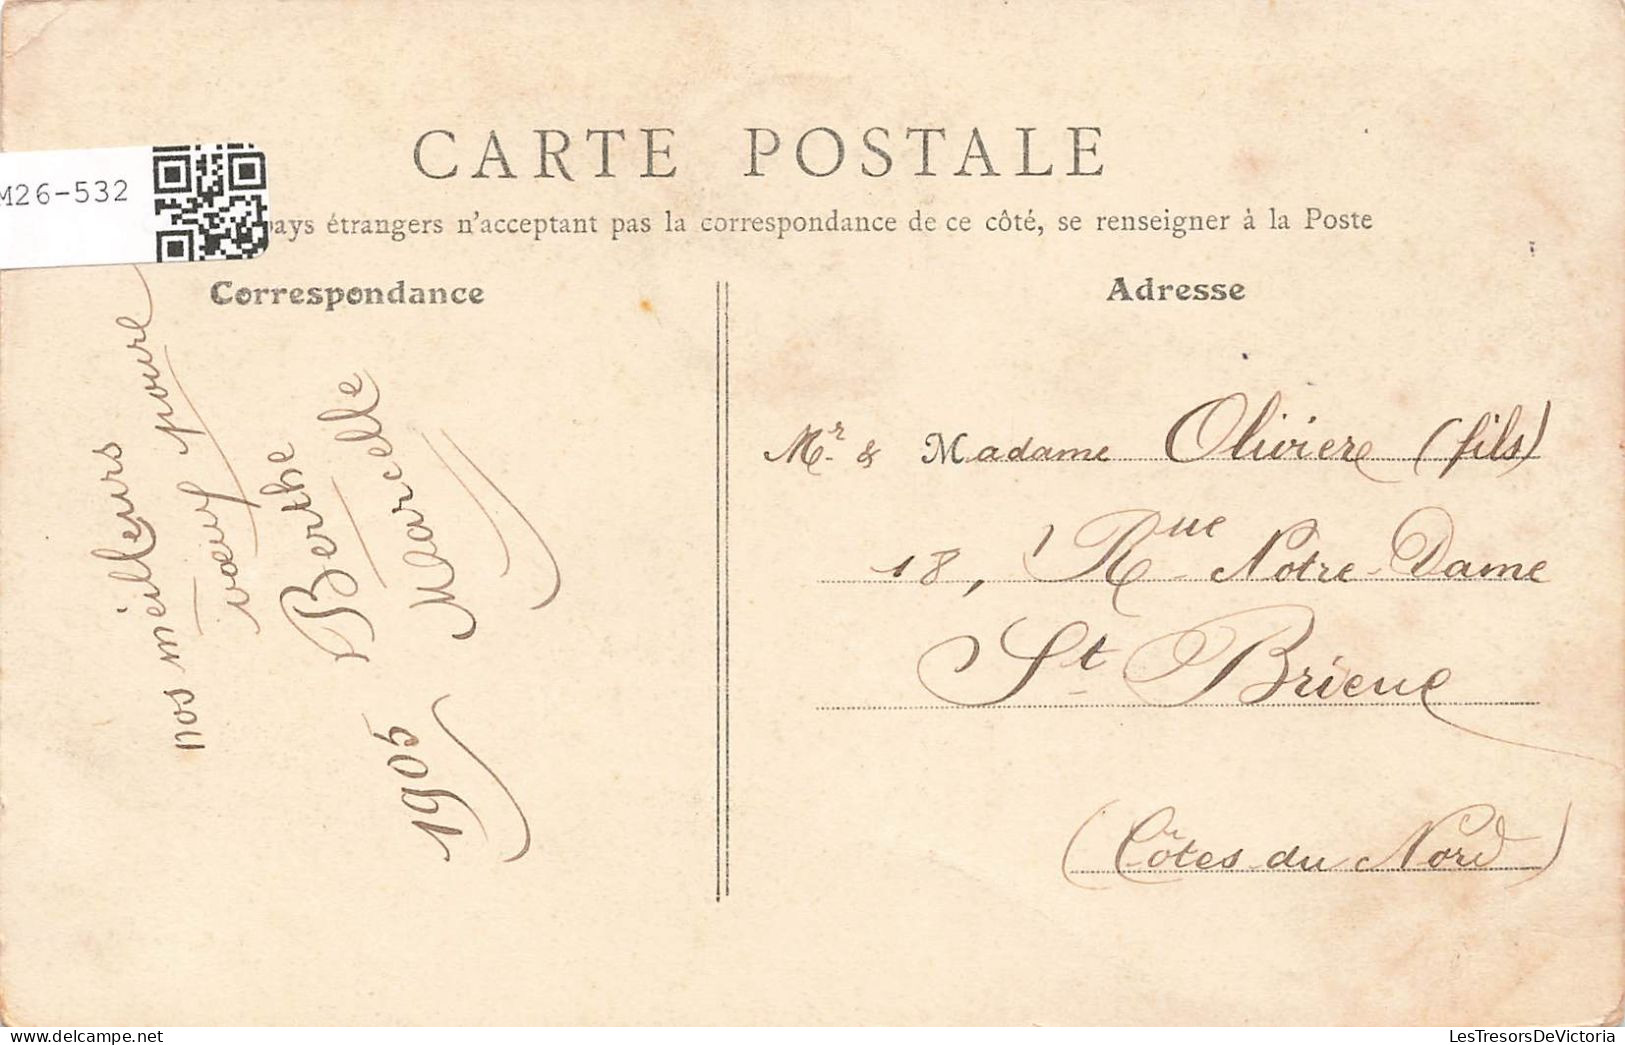 CARTE POSTALE
M26-532
pays étrangers n'acceptant pas la correspondance de ce côté, se renseigner à la Poste
Correspondance
nos meilleurs
vœux pour
Berthe
Marcelle
1905
Adresse
Mr & Madame Oliviere (fils)
18, Rue Notre-Dame
St Brieuc
(Côtes du Nord)
LesTresorsDeVictoria